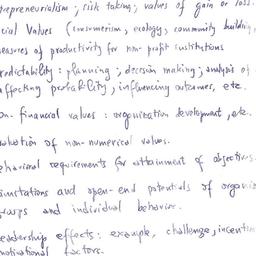 repreneurialism; risk taking; values of gain or loss.
cial Values (consumerism, ecology, community building,
easures of productivity for non-profit institutions
redictability: planning; decision making; analysis of
affecting probability; influencing outcomes, etc.
on-financial values: organization development, etc.
valuation of non-numerical values.
ehavioral requirements for attainment of objectives.
imitations and open-end potentials of organiz
groups and individual behavior.
eadership effects: example, challenge, incentiv
motivational factors.